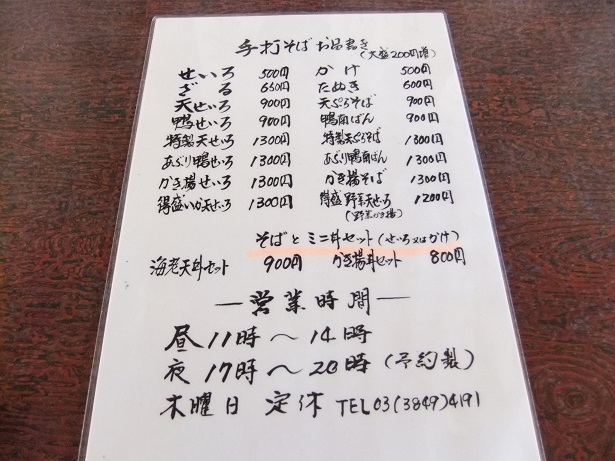 手打そば お品書き(大盛200円増)
せいろ 500円 かけ 500円
ざる 650円 たぬき 600円
天せいろ 900円 天ぷらそば 900円
鴨せいろ 900円 鴨南ばん 900円
特製天せいろ 1300円 特製天ぷらそば 1300円
あぶり鴨せいろ 1300円 あぶり鴨南ばん 1300円
かき揚せいろ 1300円 かき揚そば 1300円
得盛いか天せいろ 1300円 得盛野菜天せいろ 1200円
(野菜かき揚)
そばとミニ丼セット(せいろ又はかけ)
海老天丼セット 900円 かき揚丼セット 800円
―営業時間―
昼 11時〜14時
夜 17時〜20時(予約製)
木曜日 定休 TEL03(3849)4191